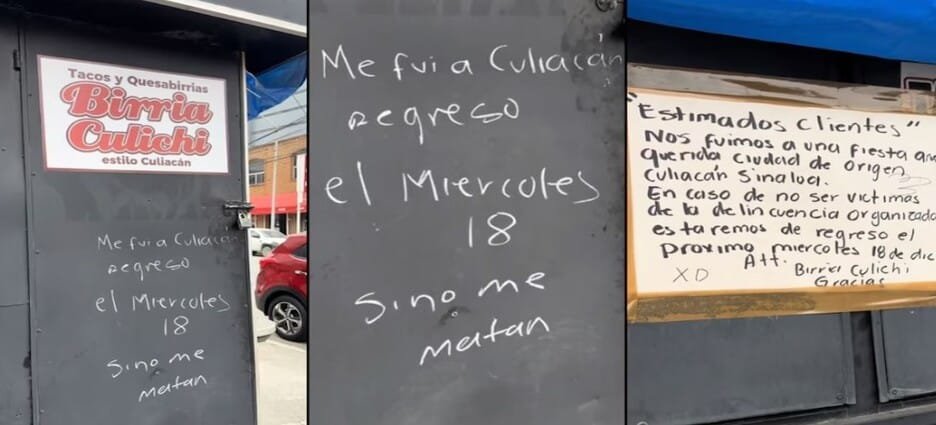 Tacos y Quesabirrias
Birria
Culichi
estilo Culiacán
Me fui a Culiacán
regreso
el Miercoles
18
sino me
matan
Me fui a Culiacán
regreso
el Miercoles
18
sino me
matan
"Estimados Clientes"
Nos fuimos a una fiesta a
querida ciudad de origen
Culiacán Sinaloa.
En caso de no ser victimas
de la delincuencia organizada
estaremos de regreso el
proximo miercoles 18 de dic
Att.
XD
Birria Culichi
Gracias